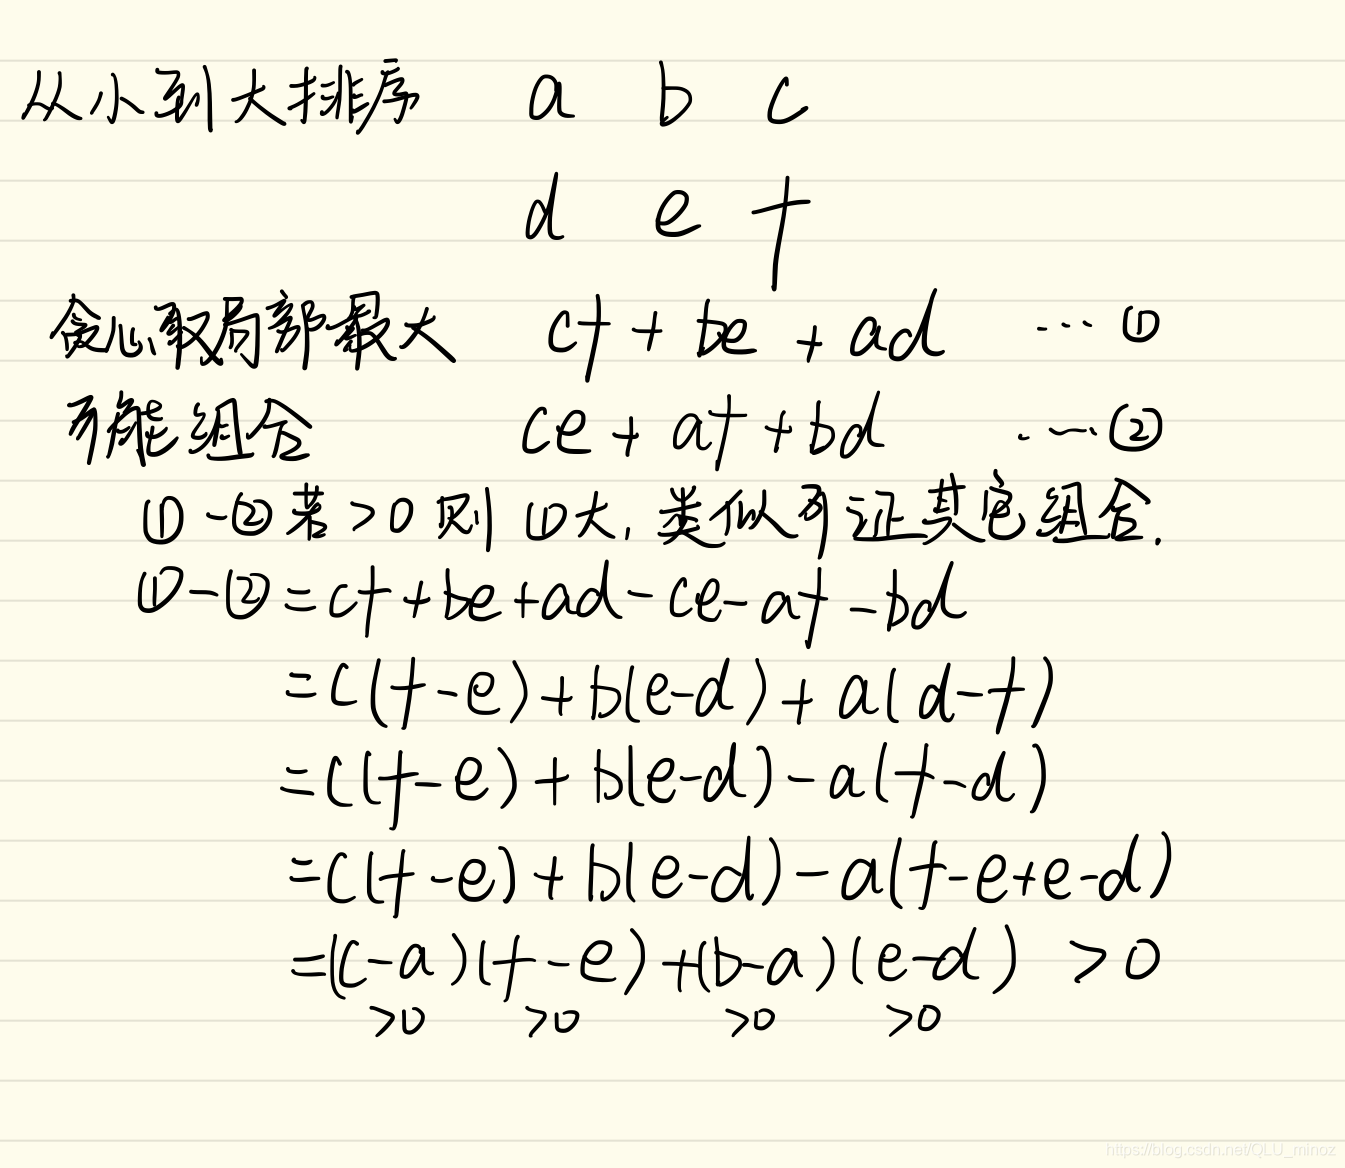 从小到大排序 a b c
d e f
贪心取局部最大 cf + be + ad ...①
可能组合 ce + af + bd ...②
①-②若>0则①大,类似可证其它组合.
①-②=cf+be+ad-ce-af-bd
=c(f-e)+b(e-d)+a(d-f)
=c(f-e)+b(e-d)-a(f-d)
=c(f-e)+b(e-d)-a(f-e+e-d)
=(c-a)(f-e)+(b-a)(e-d) >0
>0 >0 >0 >0
https://blog.csdn.net/QLU_minoz